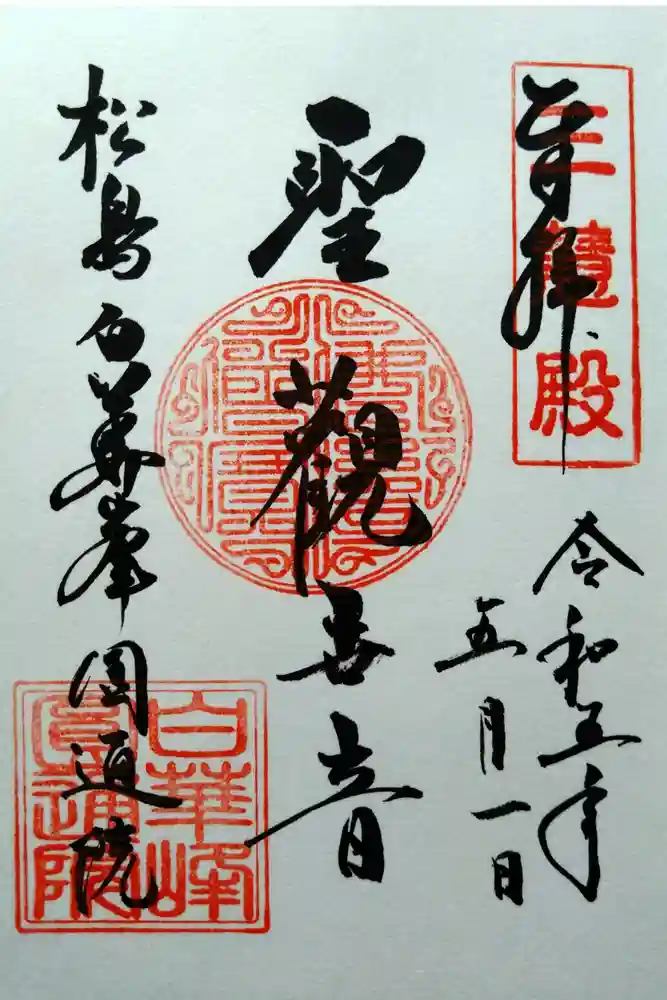 奉拝
三慧殿
令和五年
五月一日
聖観世音
松島白華峯圓通院
白華峰
圓通院